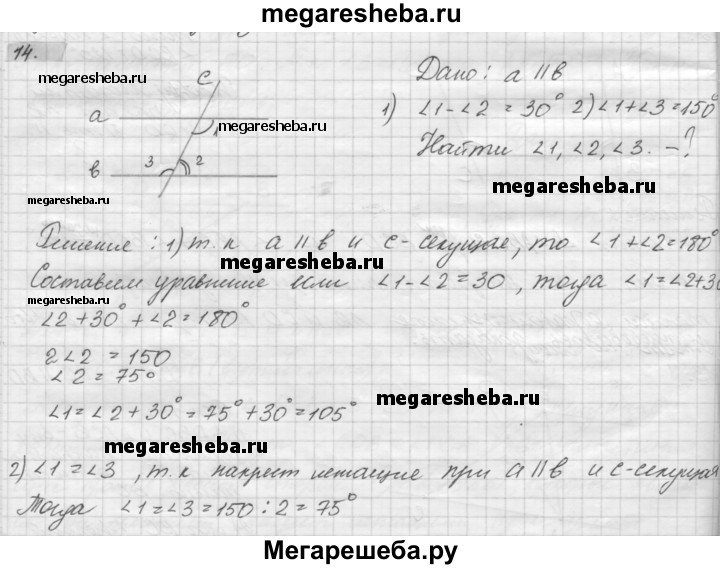 megaresheba.ru
14.
megaresheba.ru
c
a
1
megaresheba.ru
в
3
2
megaresheba.ru
Дано: a || в
1) ∠1-∠2 = 30° 2) ∠1+∠3=150°
Найти ∠1, ∠2, ∠3. -?
megaresheba.ru
Решение: 1) т.к a || в и c - секущая, то ∠1+∠2=180°
megaresheba.ru
Составим уравнение или ∠1-∠2=30, тогда ∠1=∠2+30
megaresheba.ru
∠2+30°+∠2=180°
2∠2 = 150
∠2 = 75°
megaresheba.ru
∠1=∠2+30°=75°+30°=105°
megaresheba.ru
2) ∠1=∠3, т.к накрест лежащие при a || в и c-секущая
Тогда ∠1=∠3=150:2=75°
Мегарешеба.ру